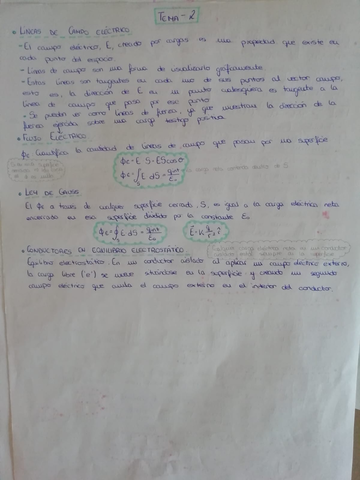 TEMA-2
• LÍNEAS DE CAMPO ELÉCTRICO
- El campo eléctrico, E, creado por cargas es una propiedad que existe en
cada punto del espacio.
- Líneas de campo son una forma de visualizarlo gráficamente.
- Estas líneas son tangentes en cada uno de sus puntos al vector campo,
esto es, la dirección de E en un punto cualesquiera es tangente a la
línea de campo que pasa por ese punto
- Se pueden ver como líneas de fuerza, ya que muestran la dirección de la
fuerza ejercida sobre una carga testigo positiva.
• FLUJO ELÉCTRICO
Φε Cuantifica la cantidad de líneas de campo que pasan por una superficie
Φε = E·S = ES cosθ
Φε = ∫s E dS = qint/ε₀
• LEY DE GAUSS
El Φε a través de cualquier superficie cerrada, S, es igual a la carga eléctrica neta
encerrada en esa superficie dividido por la constante ε₀
Φε = ∮s E dS = qint/ε₀
• CONDUCTORES EN EQUILIBRIO ELECTROSTÁTICO
Equilibrio electrostático. En un conductor aislado al aplicar un campo eléctrico externo,
la carga libre (e⁻) se mueve situándose en la superficie y creando un segundo
campo eléctrico que anula el campo externo en el interior del conductor.